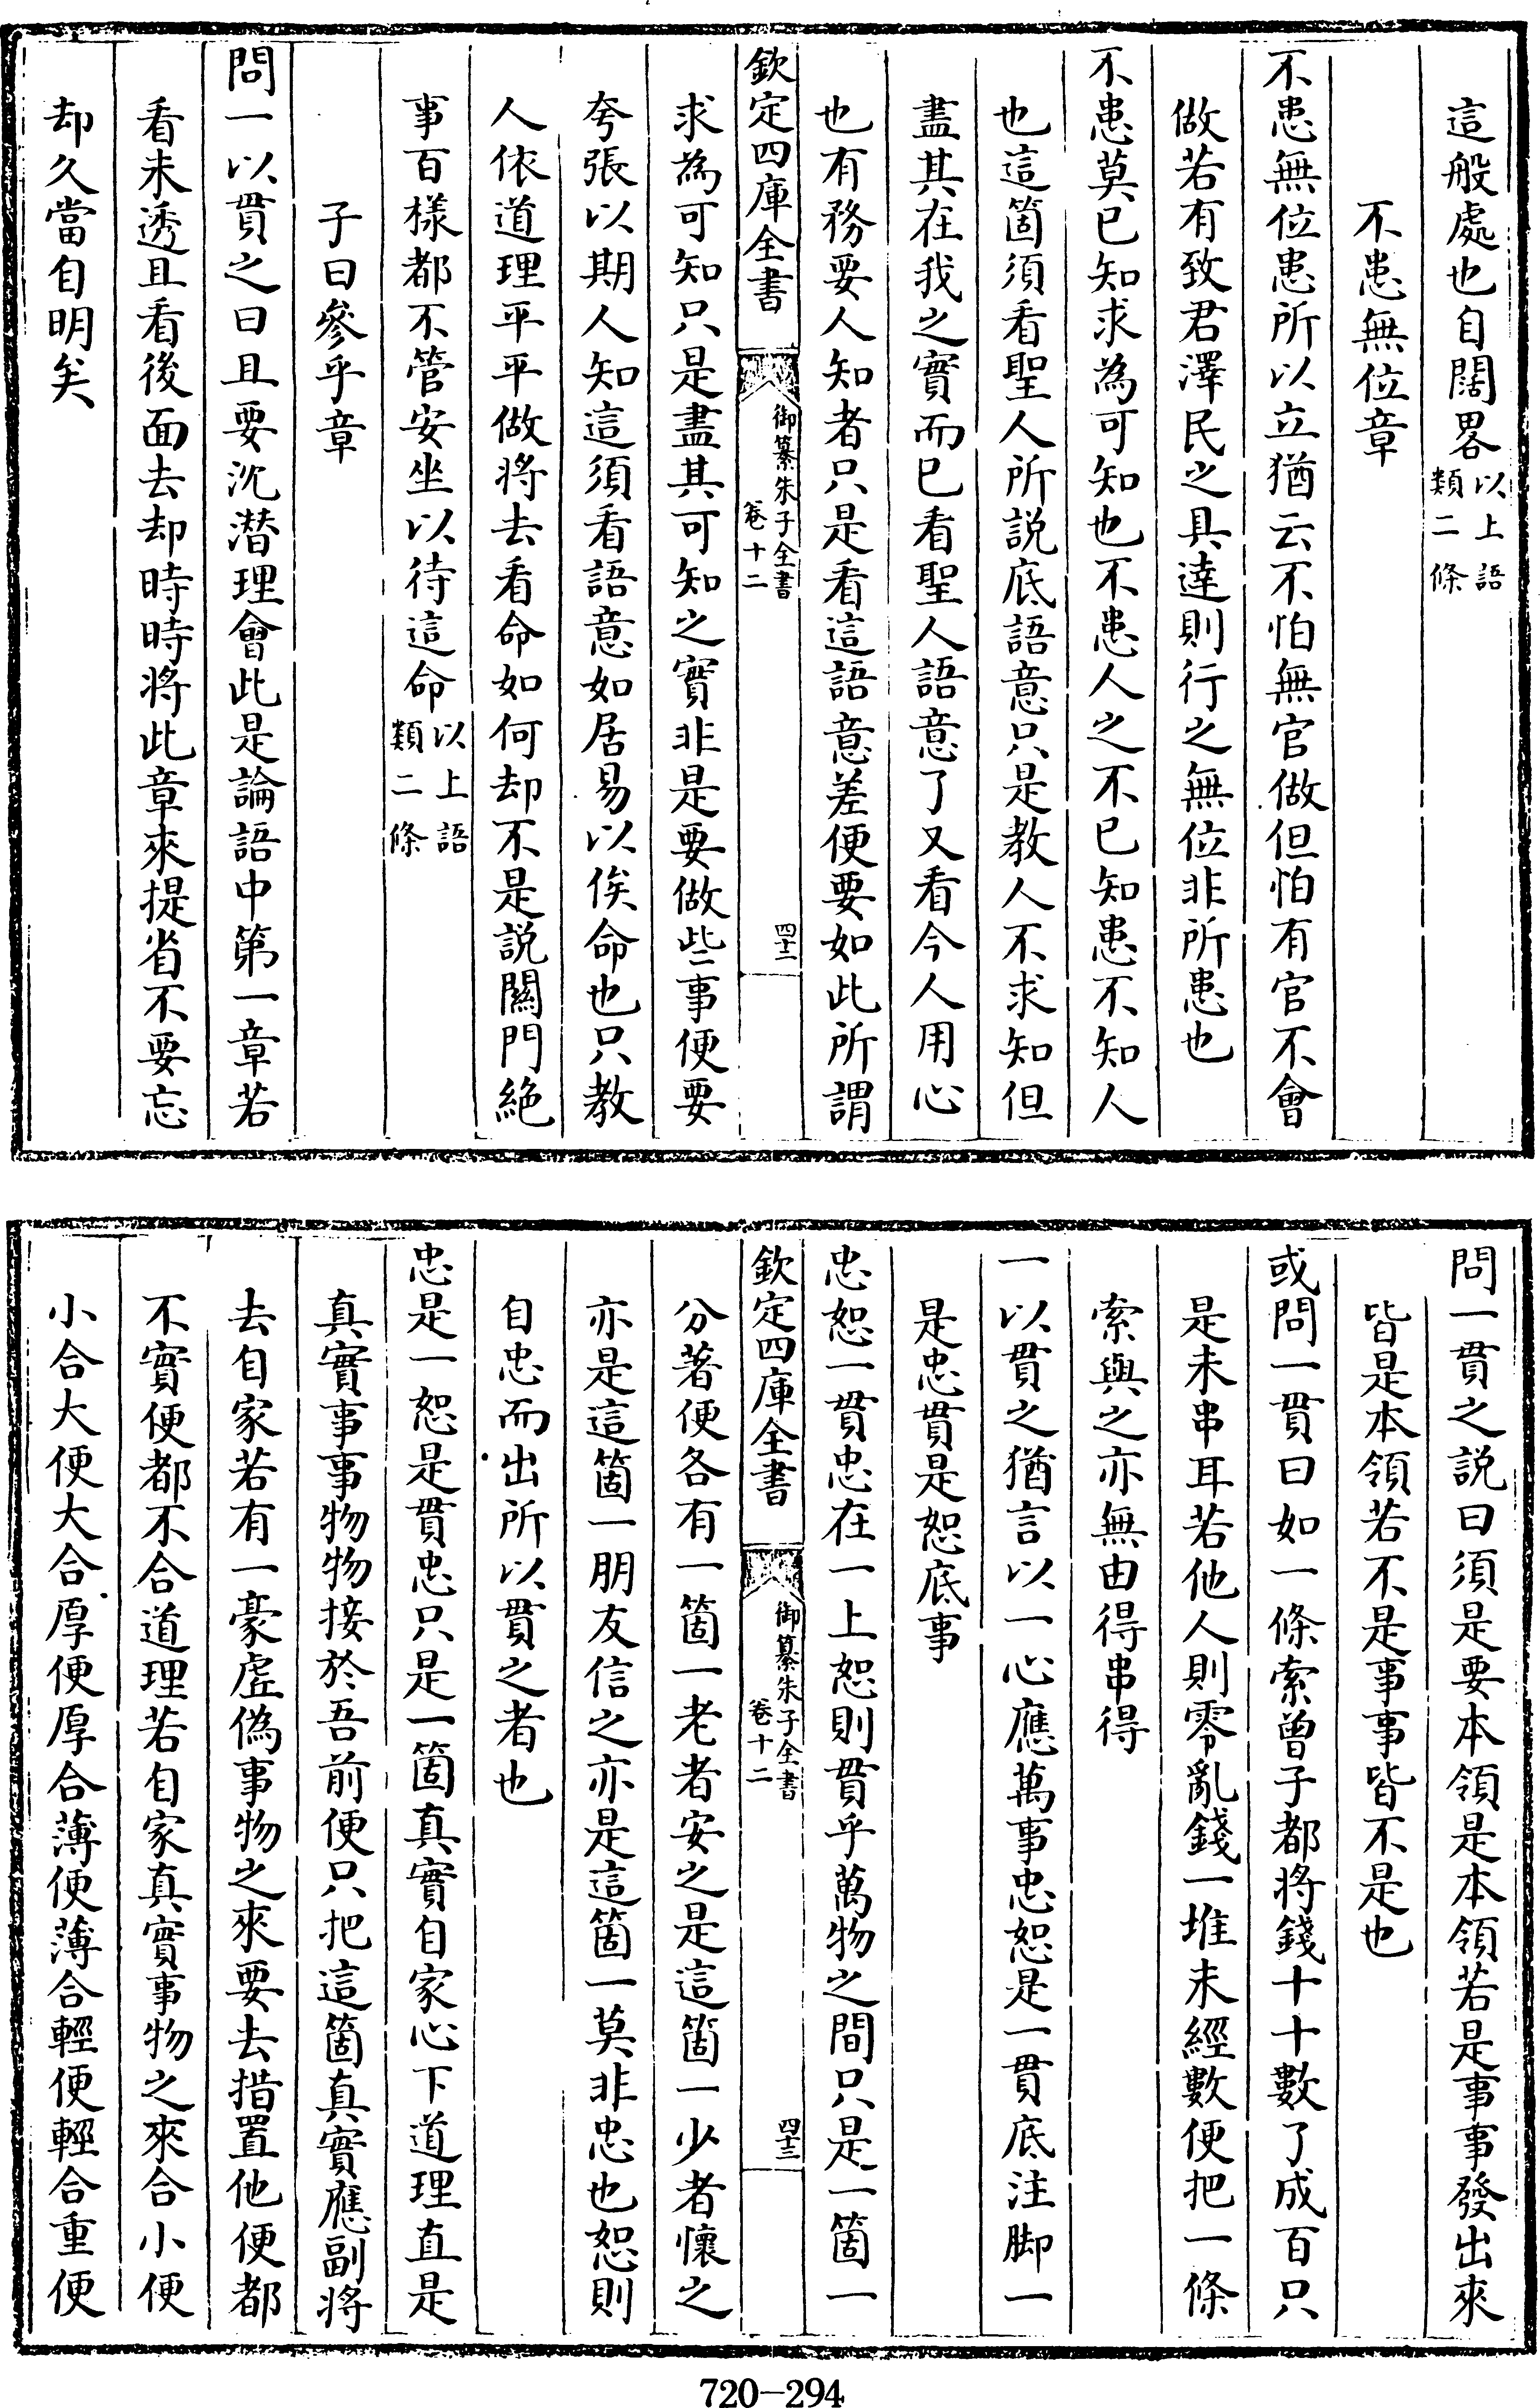 這般處也自闊畧以上語類二條
不患無位章
不患無位患所以立猶云不怕無官做但怕有官不會
做若有致君澤民之具達則行之無位非所患也
不患莫已知求為可知也不患人之不已知患不知人
也這箇須看聖人所説底語意只是教人不求知但
盡其在我之實而已看聖人語意了又看今人用心
也有務要人知者只是看這語意差便要如此所謂
欽定四庫全書
御纂朱子全書
卷十二
四十二
求為可知只是盡其可知之實非是要做些事便要
夸張以期人知這須看語意如居易以俟命也只教
人依道理平平做將去看命如何却不是説關門絶
事百樣都不管安坐以待這命以上語類二條
子曰參乎章
問一以貫之曰且要沈潜理會此是論語中第一章若
看未透且看後面去却時時將此章來提省不要忘
却久當自明矣
問一貫之説曰須是要本領是本領若是事事發出來
皆是本領若不是事事皆不是也
或問一貫曰如一條索曾子都將錢十十數了成百只
是未串耳若他人則零亂錢一堆未經數便把一條
索與之亦無由得串得
一以貫之猶言以一心應萬事忠恕是一貫底注脚一
是忠貫是恕底事
忠恕一貫忠在一上恕則貫乎萬物之間只是一箇一
欽定四庫全書
御纂朱子全書
卷十二
四十三
分著便各有一箇一老者安之是這箇一少者懷之
亦是這箇一朋友信之亦是這箇一莫非忠也恕則
自忠而出所以貫之者也
忠是一恕是貫忠只是一箇真實自家心下道理直是
真實事事物物接於吾前便只把這箇真實應副將
去自家若有一豪虚偽事物之來要去措置他便都
不實便都不合道理若自家真實事物之來合小便
小合大便大合厚便厚合薄便薄合輕便輕合重便
720-294